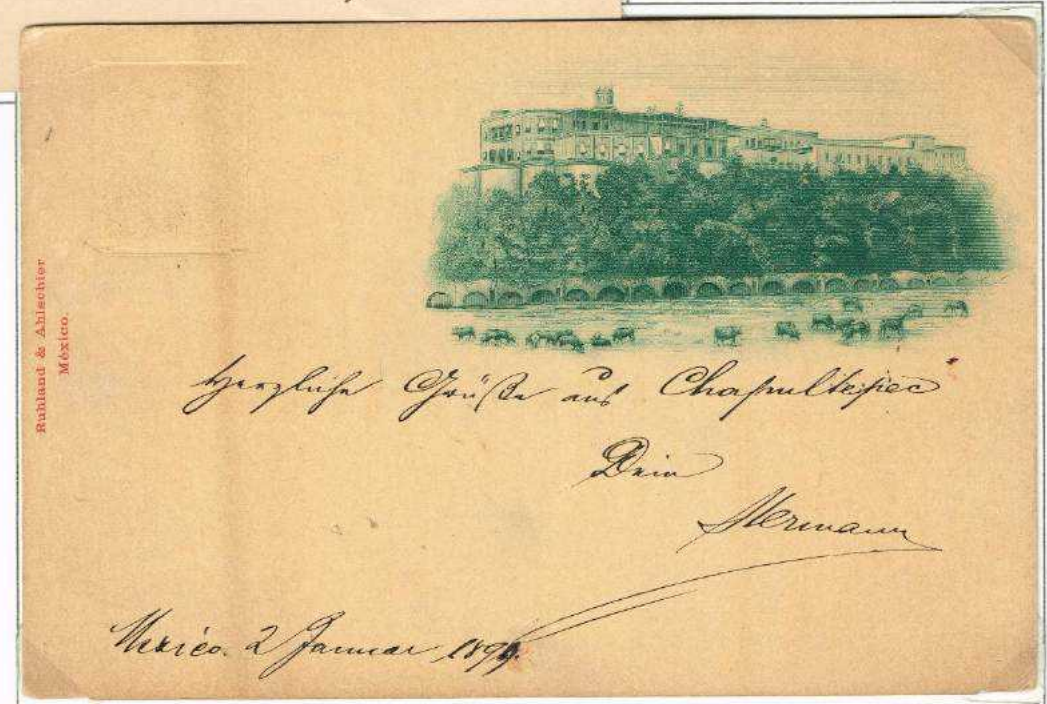 Ruhland & Ahlschier
México.
Herzliche Grüße aus Chapultepec
Dein
Hermann
Mexico. 2 Januar 1899.